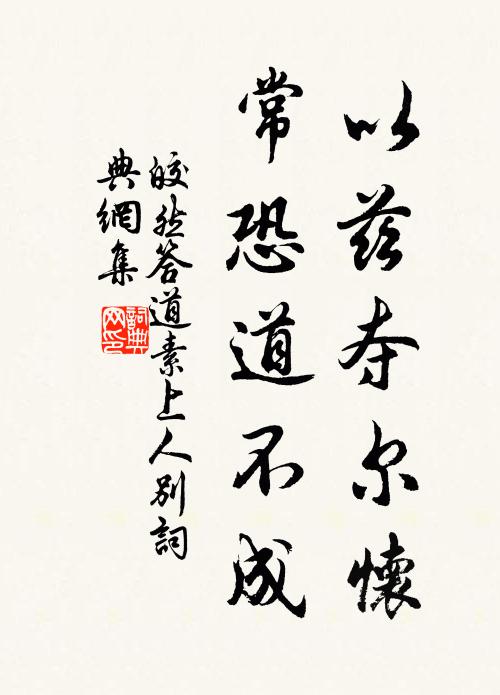 以茲夺尔懷
常恐道不成
皎然答道素上人別詞
典網集
詞典
网印